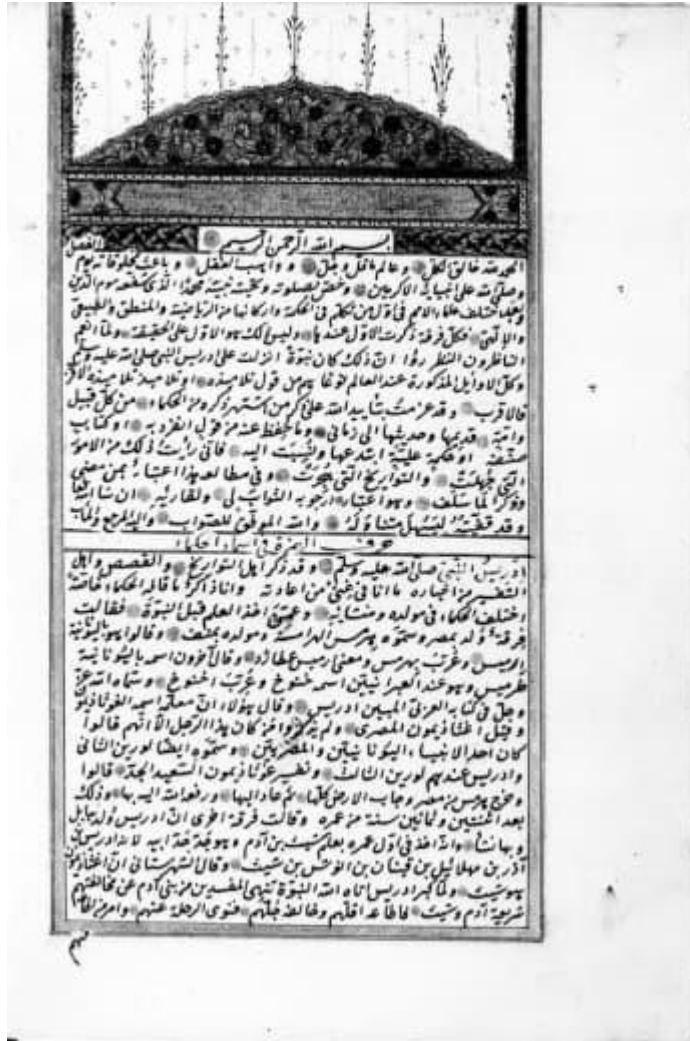 بسم الله الرحمن الرحيم
الحمد لله خالق الكل وعالم ما قل وجل وواهب العقل وباعث مخلوقاته يوم الفصل
وصلى الله على انبيائه الاكرمين وخص بصلوته وتحيته نبيه محمدا الذى شفعه يوم الدين
وبعد اختلف علماء الامم فى اول من تكلم فى الحكمة واركانها من الرياضية والمنطق والطبيعى
والالهى فكل فرقة ذكرت الاول عندها وليس ذلك هو الاول على الحقيقة ولما انعم
الناظرون النظر رؤا ان ذلك كان نبوة انزلت على ادريس النبى صلى الله عليه وسلم
وكل الاوايل المذكورة عند العالم نوعا هم من قول تلاميذه او تلاميذ تلاميذه الاقرب
فالاقرب وقد عزمت بتأييد الله على ذكر من اشتهر ذكره من الحكماء من كل قبيل
وامة قديمها وحديثها الى زمانى وما حفظ عنه من قول انفرد به او كتاب
صنفه او حكمة علية ابتدعها ونسبت اليه فانى رأيت ذلك من الامور
التى جهلت والتواريخ التى هجرت وفى مطالعة هذا اعتبار بمن مضى
وذكر لما سلف وهو اعتبار ارجو به الثواب لى ولقاريه ان شاء الله
وقد قفيته ليسهل متناوله والله الموفق للصواب واليه المرجع والمآب
حرف الهمزة فى اسماء الحكماء
ادريس النبى صلى الله عليه وسلم وقد ذكر اهل التواريخ والقصص واهل
التفسير من اخباره ما انا فى غنى من اعادته وانا ذاكر ما قاله الحكماء خاصة
اختلف الحكماء فى مولده ومنشائه وعمن اخذ العلم قبل النبوة فقالت
فرقة ولد بمصر وسموه هرمس الهرامسة ومولده بمنف وقالوا هو باليونانية
ارميس وعرب بهرمس ومعنى ارميس عطارد وقال آخرون اسمه باليونانية
طرميس وهو عند العبرانيين اسمه خنوخ وعرب اخنوخ وسماه الله عز
وجل فى كتابه العربى المبين ادريس وقال هؤلاء ان معلمه اسمه الغوثاذيمون
وقيل اغثاذيمون المصرى ولم يذكروا من كان هذا الرجل الا انهم قالوا
كان احد الانبياء اليونانيين والمصريين وسموه ايضا اورين الثانى
وادريس عندهم اورين الثالث وتفسير غوثاذيمون السعيد الجد قالوا
وخرج هرمس من مصر وجاب الارض كلها ثم عاد اليها ورفعه الله اليه بها وذلك
بعد اثنتين وثمانين سنة من عمره وقالت فرقة اخرى ان ادريس ولد ببابل
وبها نشأ وانه اخذ فى اول عمره بعلم شيث بن آدم وهو جد جد ابيه لان ادريس بن
آزر بن مهلائيل بن قينان بن انوش بن شيث وقال الشهرستانى ان اغثاذيمون
هو شيث ولما كبر ادريس اتاه الله النبوة فنهى المفسدين من بنى آدم عن مخالفتهم
شريعة آدم وشيث فاطاعه اقلهم وخالفه جلهم فنوى الرحلة عنهم وامر من اطاعه
منهم